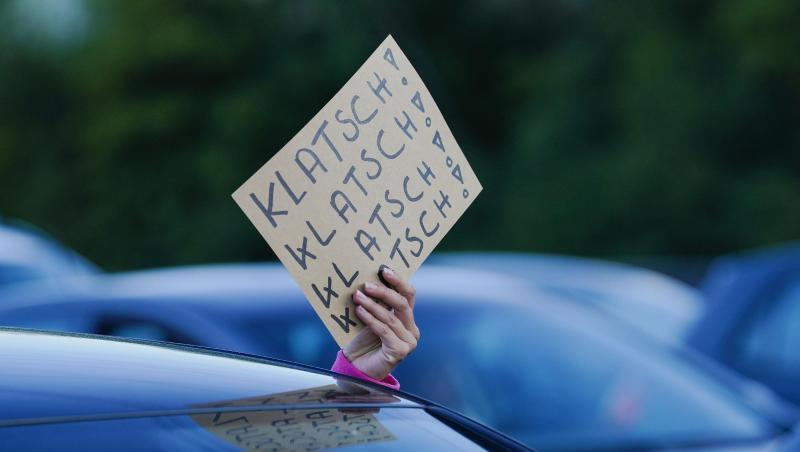 KLATSCH!
KLATSCH!
KLATSCH!
TSCH!